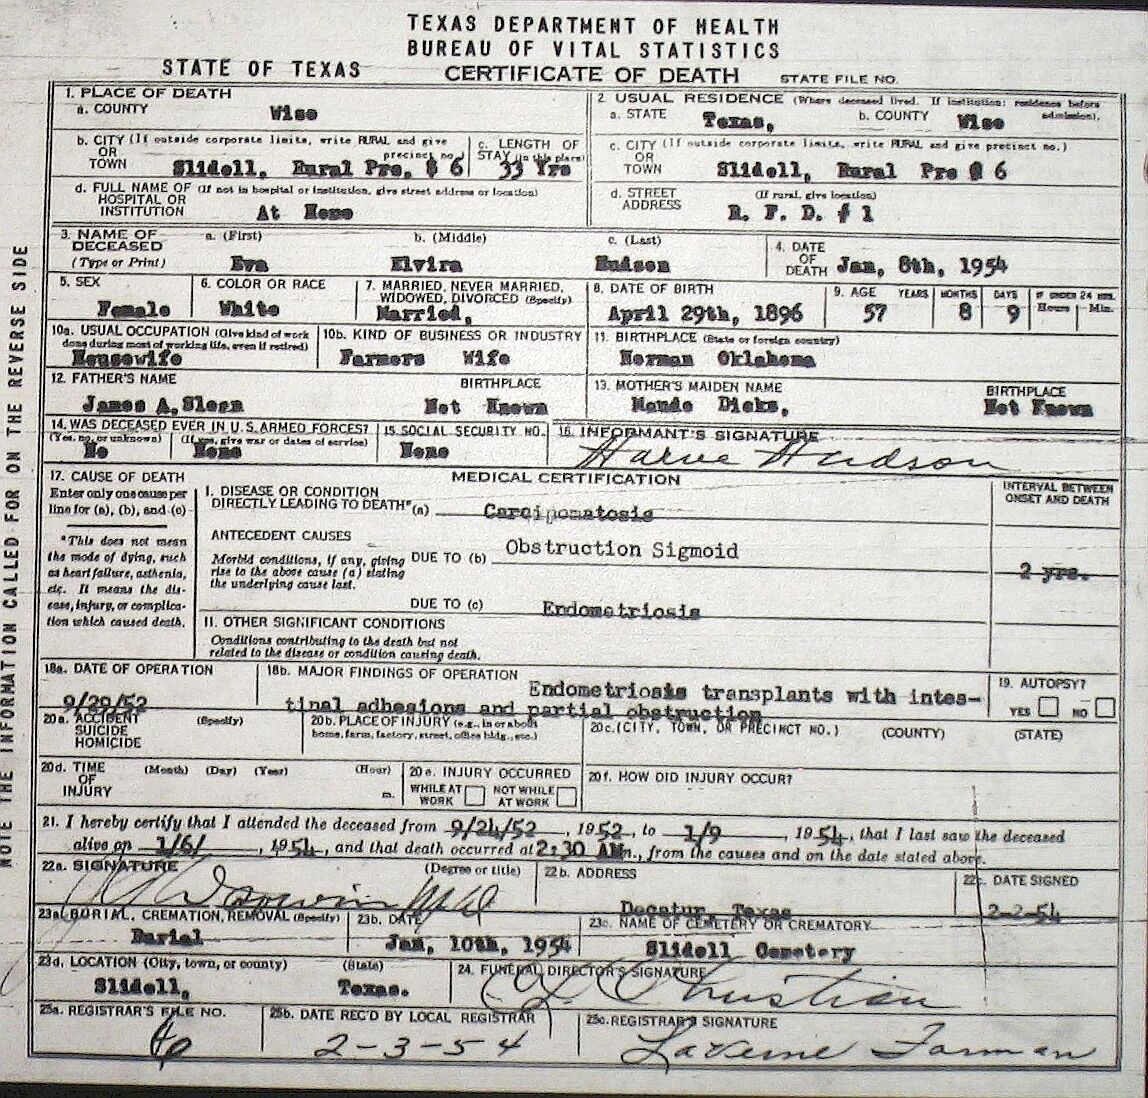 TEXAS DEPARTMENT OF HEALTH
BUREAU OF VITAL STATISTICS
STATE OF TEXAS CERTIFICATE OF DEATH STATE FILE NO.
1. PLACE OF DEATH
a. COUNTY Wise
2. USUAL RESIDENCE (Where deceased lived. If institution: residence before admission).
a. STATE Texas, b. COUNTY Wise
b. CITY (If outside corporate limits, write RURAL and give precinct no.) OR TOWN Slidell, Rural Pre. # 6
c. LENGTH OF STAY (in this place) 33 Yrs
c. CITY (If outside corporate limits, write RURAL and give precinct no.) OR TOWN Slidell, Rural Pre # 6
d. FULL NAME OF (If not in hospital or institution, give street address or location) HOSPITAL OR INSTITUTION At Home
d. STREET ADDRESS (If rural, give location) R. F. D. # 1
3. NAME OF DECEASED (Type or Print)
a. (First) Eva
b. (Middle) Elvira
c. (Last) Hudson
4. DATE OF DEATH Jan, 8th, 1954
5. SEX Female
6. COLOR OR RACE White
7. MARRIED, NEVER MARRIED, WIDOWED, DIVORCED (Specify) Married,
8. DATE OF BIRTH April 29th, 1896
9. AGE YEARS 57 MONTHS 8 DAYS 9 IF UNDER 24 HRS. Hours Min.
10a. USUAL OCCUPATION (Give kind of work done during most of working life, even if retired) Housewife
10b. KIND OF BUSINESS OR INDUSTRY Farmers Wife
11. BIRTHPLACE (State or foreign country) Norman Oklahoma
12. FATHER'S NAME James A.Sloan BIRTHPLACE Not Known
13. MOTHER'S MAIDEN NAME Maude Dicks, BIRTHPLACE Not Known
14. WAS DECEASED EVER IN U.S. ARMED FORCES?
(Yes, no, or unknown) No (If yes, give war or dates of service) None
15 SOCIAL SECURITY NO. None
16. INFORMANT'S SIGNATURE Harve Hudson
17. CAUSE OF DEATH
Enter only one cause per line for (a), (b), and (c)
*This does not mean the mode of dying, such as heart failure, asthenia, etc. It means the disease, injury, or complication which caused death.
MEDICAL CERTIFICATION
INTERVAL BETWEEN ONSET AND DEATH
I. DISEASE OR CONDITION
DIRECTLY LEADING TO DEATH* (a) Carcinomatosis
ANTECEDENT CAUSES
Morbid conditions, if any, giving rise to the above cause (a) stating the underlying cause last.
DUE TO (b) Obstruction Sigmoid
2 yrs.
DUE TO (c) Endometriosis
II. OTHER SIGNIFICANT CONDITIONS
Conditions contributing to the death but not related to the disease or condition causing death.
18a. DATE OF OPERATION 9/29/52
18b. MAJOR FINDINGS OF OPERATION Endometriosis transplants with intes-
tinal adhesions and partial obstruction
19. AUTOPSY?
YES NO
20a. ACCIDENT SUICIDE HOMICIDE (Specify)
20b. PLACE OF INJURY (e.g., in or about home, farm, factory, street, office bldg., etc.)
20c. (CITY, TOWN, OR PRECINCT NO.) (COUNTY) (STATE)
20d. TIME OF INJURY (Month) (Day) (Year) (Hour) m.
20e. INJURY OCCURRED
WHILE AT WORK NOT WHILE AT WORK
20f. HOW DID INJURY OCCUR?
21. I hereby certify that I attended the deceased from 9/24/52, 1952, to 1/9, 1954, that I last saw the deceased
alive on 1/6/, 1954, and that death occurred at 2:30 AMm., from the causes and on the date stated above.
22a. SIGNATURE (Degree or title) MD
22b. ADDRESS Decatur, Texas
22c. DATE SIGNED 2-2-54
23a. BURIAL, CREMATION, REMOVAL (Specify) Burial
23b. DATE Jan, 10th, 1954
23c. NAME OF CEMETERY OR CREMATORY Slidell Cemetery
23d. LOCATION (City, town, or county) (State)
Slidell, Texas.
24. FUNERAL DIRECTOR'S SIGNATURE Christian
25a. REGISTRAR'S FILE NO.
25b. DATE REC'D BY LOCAL REGISTRAR 2-3-54
25c. REGISTRAR'S SIGNATURE LaVerne Forman
NOTE THE INFORMATION CALLED FOR ON THE REVERSE SIDE